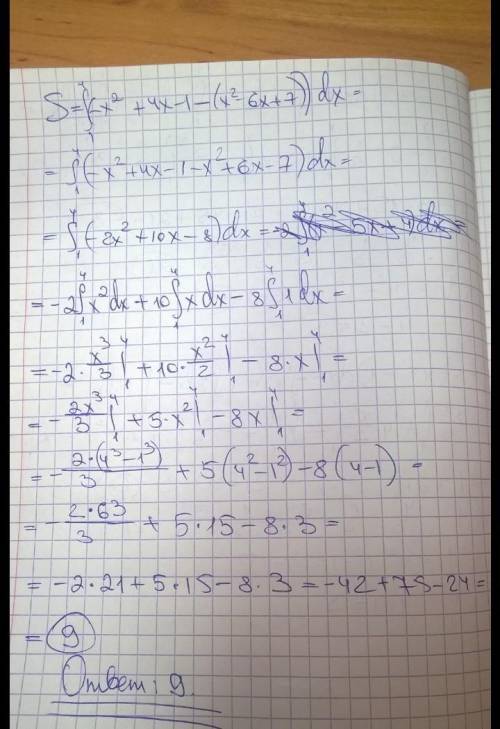 S = ∫₁⁴(-x² + 4x - 1 - (x² - 6x + 7)) dx =
= ∫₁⁴(-x² + 4x - 1 - x² + 6x - 7) dx =
= ∫₁⁴(-2x² + 10x - 8) dx =
= -2∫₁⁴ x² dx + 10∫₁⁴ x dx - 8∫₁⁴ 1 dx =
= -2 · x³/3 |₁⁴ + 10 · x²/2 |₁⁴ - 8 · x |₁⁴ =
= - 2x³/3 |₁⁴ + 5 · x² |₁⁴ - 8x |₁⁴ =
= - 2·(4³ - 1³)/3 + 5(4² - 1²) - 8(4 - 1) =
= - 2·63/3 + 5·15 - 8·3 =
= -2·21 + 5·15 - 8·3 = -42 + 75 - 24 =
= 9
Ответ: 9.